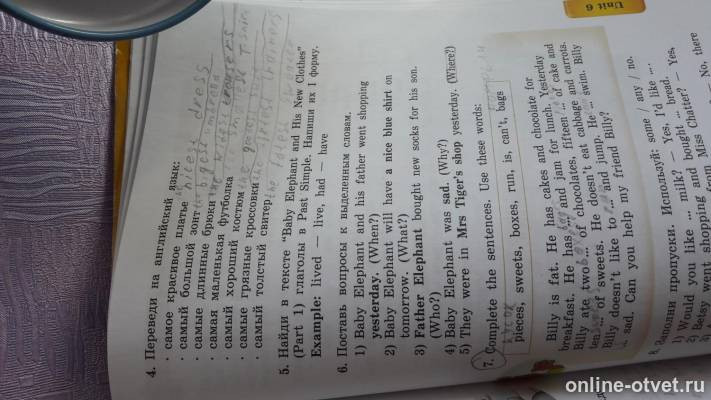 Unit 6
4. Переведи на английский язык:
· самое красивое платье nicest dress
· самый большой зонт the bigest
· самые длинные брюки trousers
· самая маленькая футболка
· самый хороший костюм
· самые грязные кроссовки
· самый толстый свитер the
5. Найди в тексте "Baby Elephant and His New Clothes"
(Part 1) глаголы в Past Simple. Напиши их I форму.
Example: lived — live, had — have
6. Поставь вопросы к выделенным словам.
1) Baby Elephant and his father went shopping
yesterday. (When?)
2) Baby Elephant will have a nice blue shirt on
tomorrow. (What?)
3) Father Elephant bought new socks for his son.
(Who?)
4) Baby Elephant was sad. (Why?)
5) They were in Mrs Tiger's shop yesterday. (Where?)
7. Complete the sentences. Use these words:
pieces, sweets, boxes, run, is, can't, bags
Billy is fat. He has cakes and chocolate for
breakfast. He has ... and jam for lunch. Yesterday
Billy ate two ... of chocolates, fifteen ... of cake and
ten ... of sweets. He doesn't eat cabbage and carrots.
Billy doesn't like to ... and jump. He ... swim. Billy
... sad. Can you help my friend Billy?
8. Заполни пропуски. Используй: some / any / no.
1) Would you like ... milk? — Yes, I'd like ... .
2) Betsy went shopping and bought ... bread. — Yes,
Miss Chatter? — No, there